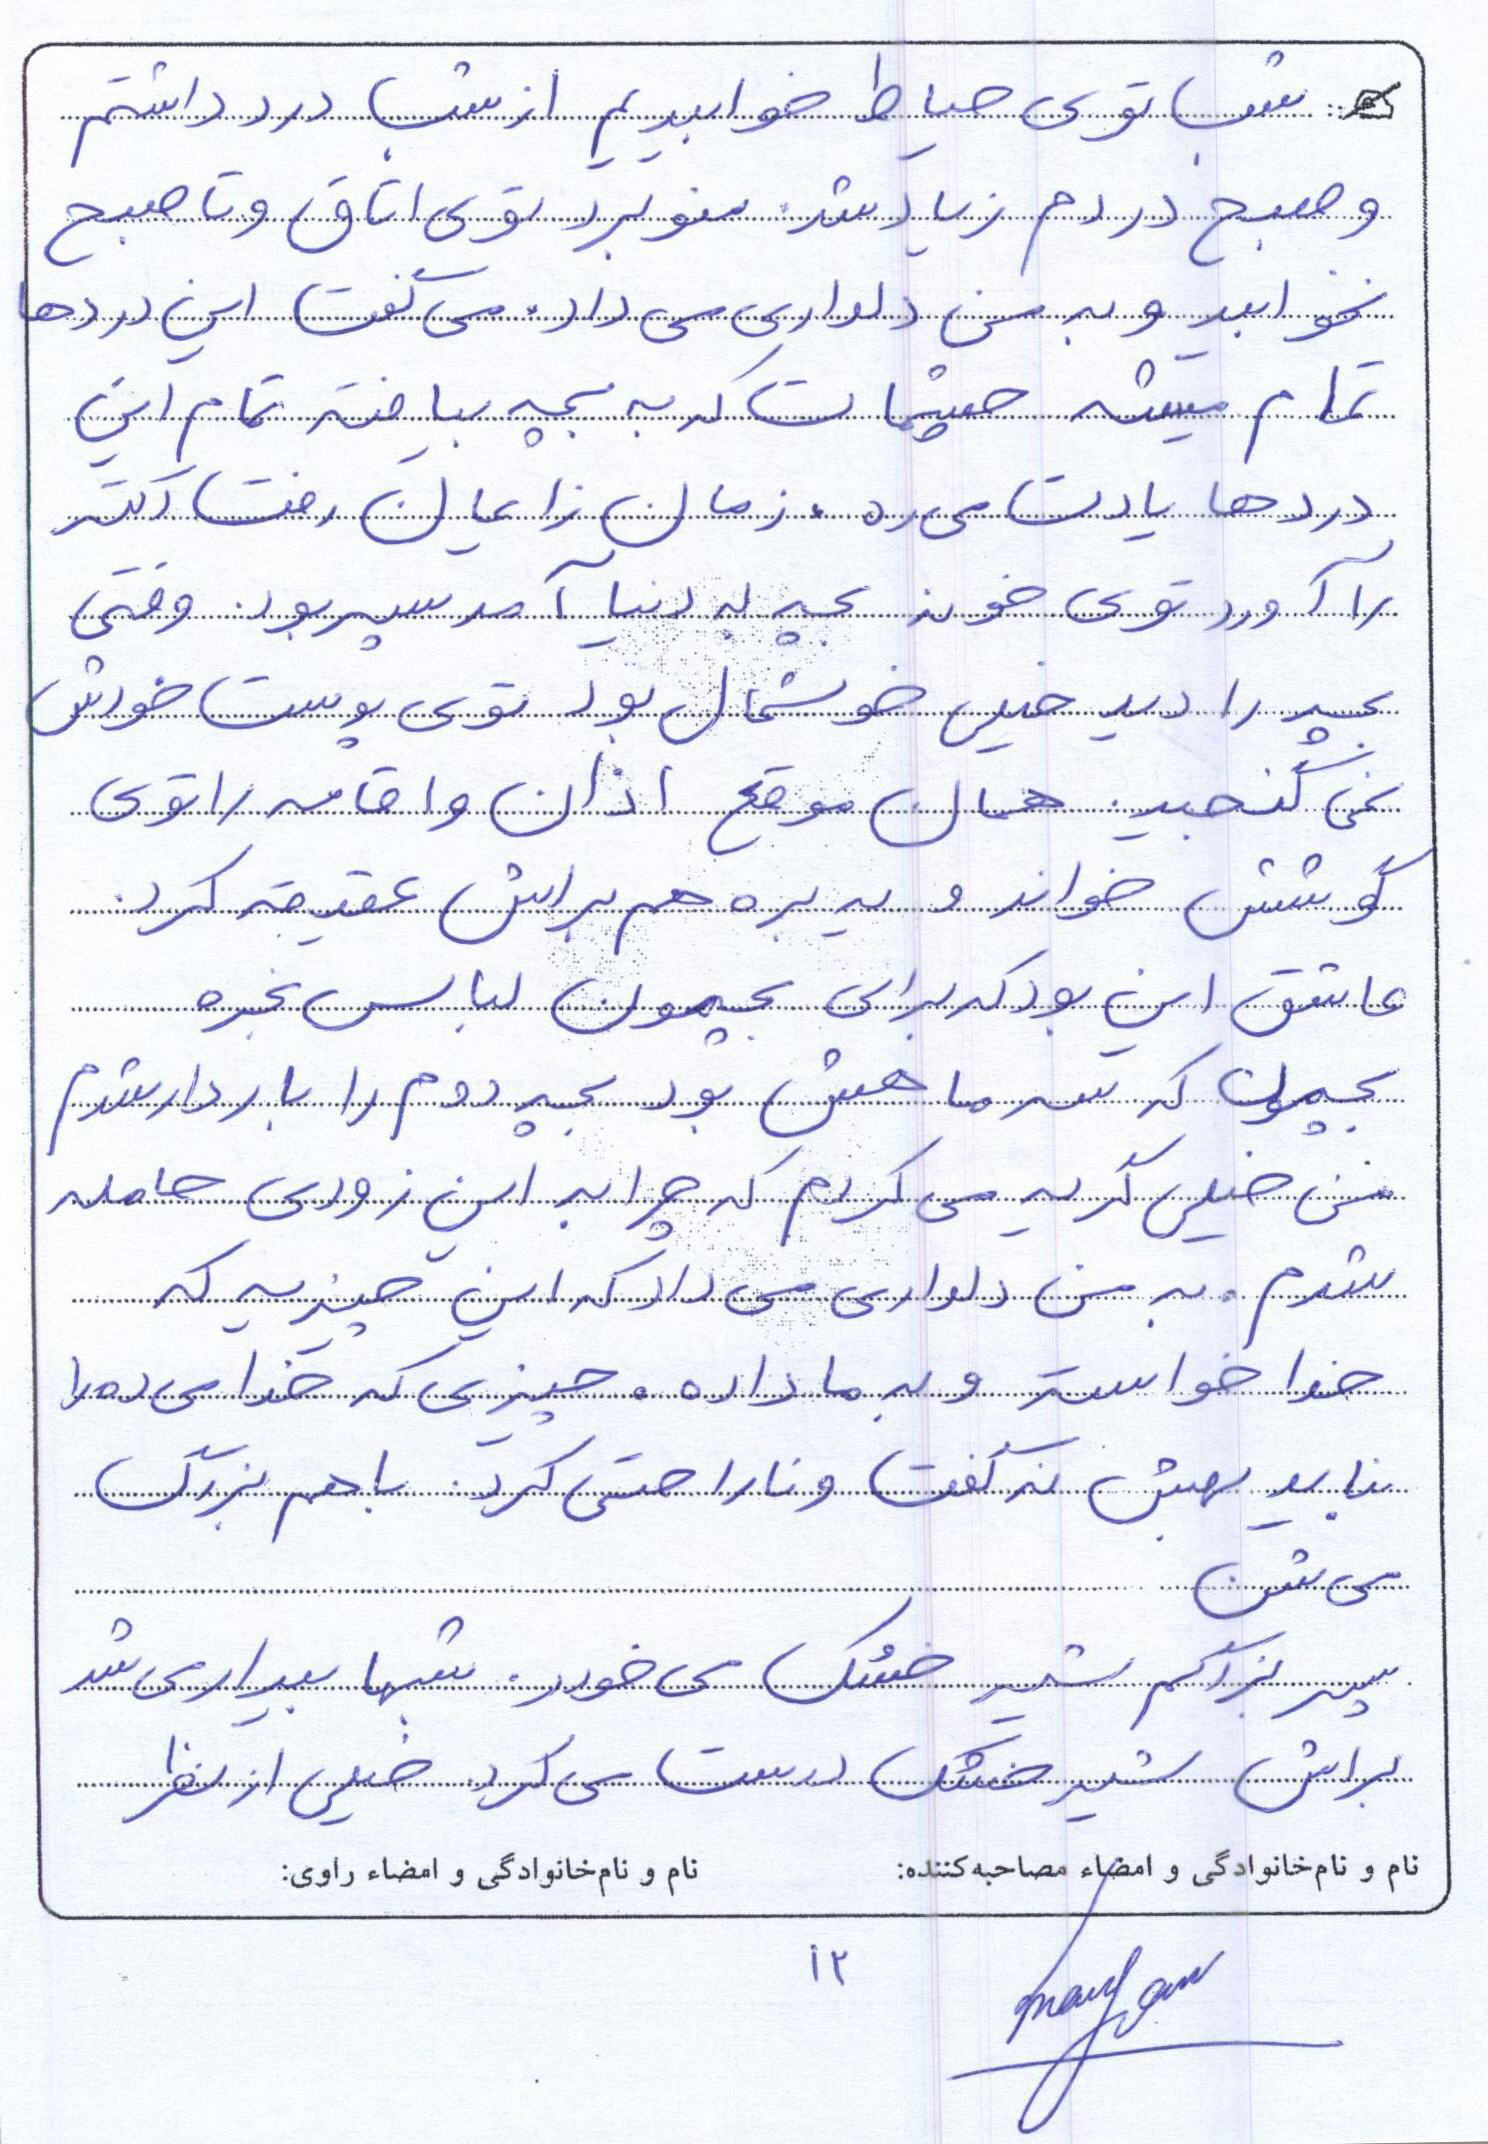 شب توی حیاط خوابیدیم از شب درد داشتم
و صبح دردم زیاد شد. منو برد توی اتاق و تا صبح
نخوابید و به من دلداری می داد. می گفت این دردها
تمام میشه چشمات که به بچه بیافته تمام این
دردها یادت می ره. زمان زایمان رفت دکتر
را آورد توی خونه بچه به دنیا آمد پسر بود. وقتی
بچه را دید خیلی خوشحال بود توی پوست خودش
نمی گنجید. همان موقع اذان و اقامه را توی
گوشش خواند و یه بره هم براش عقیقه کرد.
عاشق این بود که برای بچمون لباس بخره
بچمون که سه ماهش بود بچه دوم را باردار شدم
من خیلی گریه می کردم که چرا به این زودی حامله
شدم. به من دلداری می داد که این چیزیه که
خدا خواسته و به ما داده. چیزی که خدا می ده را
نباید بهش نه گفت و ناراحتی کرد. با هم بزرگ
می شن
پسر بزرگم شیر خشک می خورد. شبها بیدار می شد
براش شیر خشک درست می کرد خیلی از نظر
نام و نام‌خانوادگی و امضاء مصاحبه‌کننده: نام و نام‌خانوادگی و امضاء راوی:
۱۲